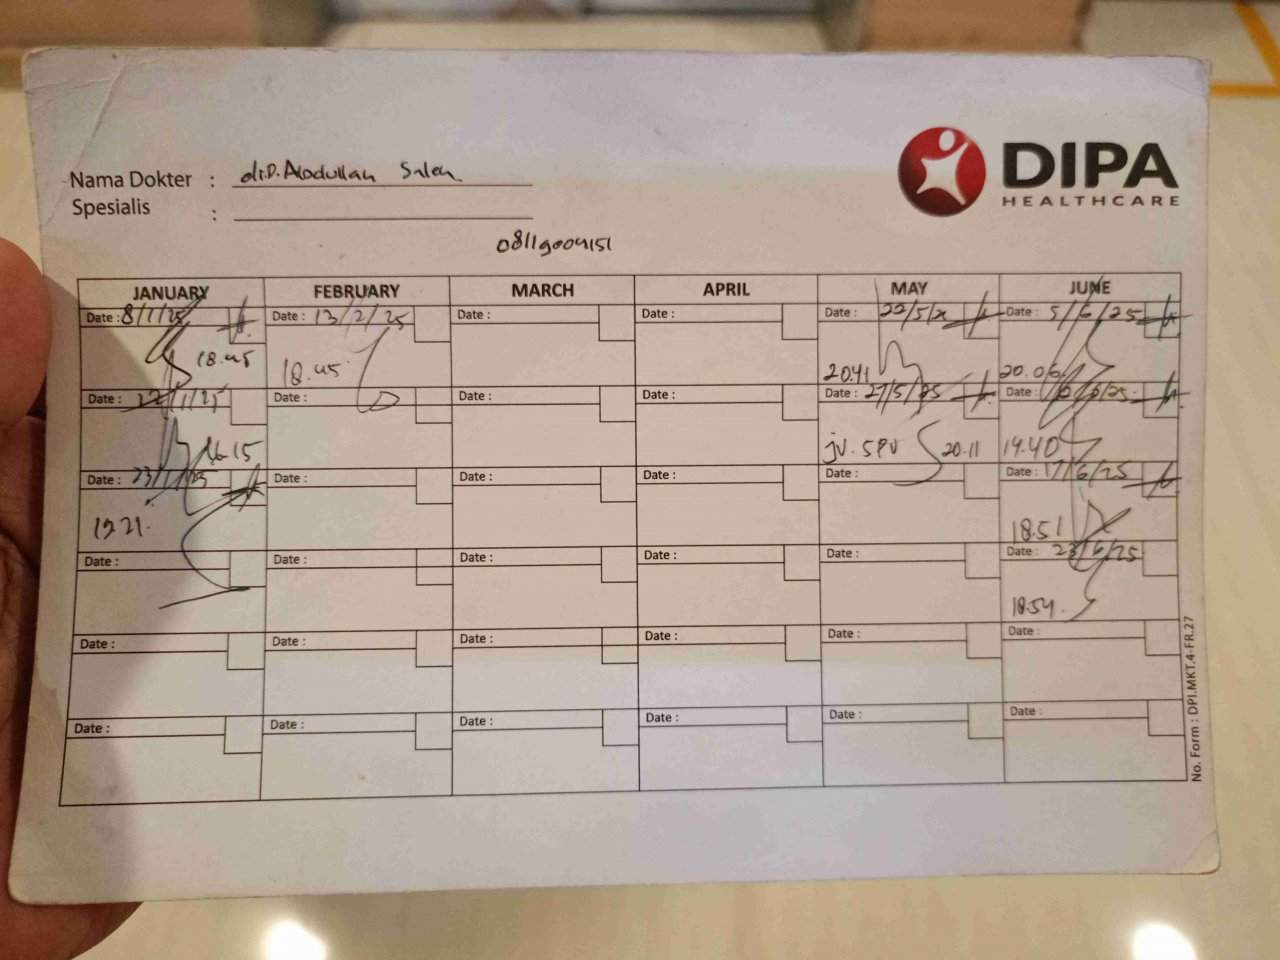 DIPA
HEALTHCARE
Nama Dokter : dr.D. Abdullah Saleh
Spesialis :
08119004151
JANUARY FEBRUARY MARCH APRIL MAY JUNE
Date : 8/1/25 Date : 13/2/25 Date : Date : Date : 22/5/ Date : 5/6/25
18.45 18.45 20.41 20.06
Date : Date : Date : Date : Date : 27/5/25 Date :
16.15 jv. SPV 20.11 19.40
Date : 23/1/25 Date : Date : Date : Date : Date : 17/6/25
18.51
Date : Date : Date : Date : Date : Date : 23/6/25
18.54.
Date : Date : Date : Date : Date : Date :
Date : Date : Date : Date : Date : Date :
No. Form : DPI.MKT.4-FR.27